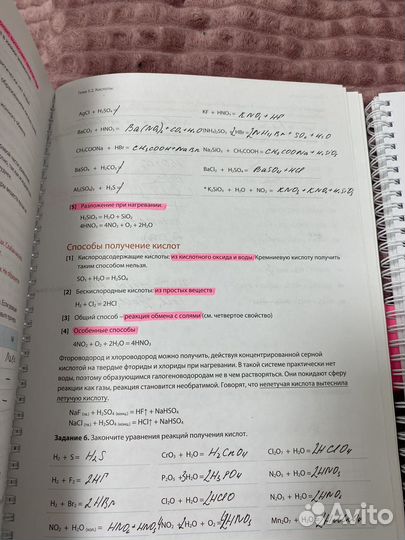 Тема 5.2. Кислоты
AgCl + H₂SO₄ KF + HNO₃ = KNO₃ + HF
BaCO₃ + HNO₃ = Ba(NO₃)₂ + CO₂ + H₂O (NH₄)₂SO₃ 2HBr = 2NH₄Br + SO₂ + H₂O
CH₃COONa + HBr = CH₃COOH + NaBr Na₂SiO₃ + CH₃COOH = CH₃COONa + H₂SiO₃
BaSO₄ + H₂CO₃ BaCl₂ + H₂SO₄ = BaSO₄ + HCl
Al₂(SO₄)₃ + H₂S * K₂SiO₃ + H₂O + NO₂ = KNO₃ + KNO₂ + H₂SiO₃
[5] Разложение при нагревании.
H₂SiO₃ = H₂O + SiO₂
4HNO₃ = 4NO₂ + O₂ + 2H₂O
Способы получение кислот
[1] Кислородсодержащие кислоты: из кислотного оксида и воды. Кремниевую кислоту получить
таким способом нельзя.
SO₃ + H₂O = H₂SO₄
[2] Бескислородные кислоты: из простых веществ
H₂ + Cl₂ = 2HCl
[3] Общий способ – реакция обмена с солями (см. четвертое свойство)
[4] Особенные способы
4NO₂ + O₂ + 2H₂O = 4HNO₃
Фтороводород и хлороводород можно получить, действуя концентрированной серной
кислотой на твердые фториды и хлориды при нагревании. В такой системе практически нет
воды, поэтому образующимся галогеноводородам не в чем растворяться. Они покидают сферу
реакции как газы, реакция становится необратимой. Говорят, что нелетучая кислота вытеснила
летучую кислоту.
NaF (тв.) + H₂SO₄ (конц.) = HF↑ + NaHSO₄
NaCl (тв.) + H₂SO₄ (конц.) = HCl↑ + NaHSO₄
Задание 6. Закончите уравнения реакций получения кислот.
H₂ + S = H₂S CrO₃ + H₂O = H₂CrO₄ Cl₂O₇ + H₂O = 2HClO₄
H₂ + F₂ = 2HF P₂O₅ + 3H₂O = 2H₃PO₄ N₂O₅ + H₂O = 2HNO₃
H₂ + Br₂ = 2HBr Cl₂O + H₂O = 2HClO N₂O₃ + H₂O = 2HNO₂
NO₂ + H₂O (хол.) = HNO₂ + HNO₃ 4NO₂ + 2H₂O + O₂ = 4HNO₃ Mn₂O₇ + H₂O
Avito